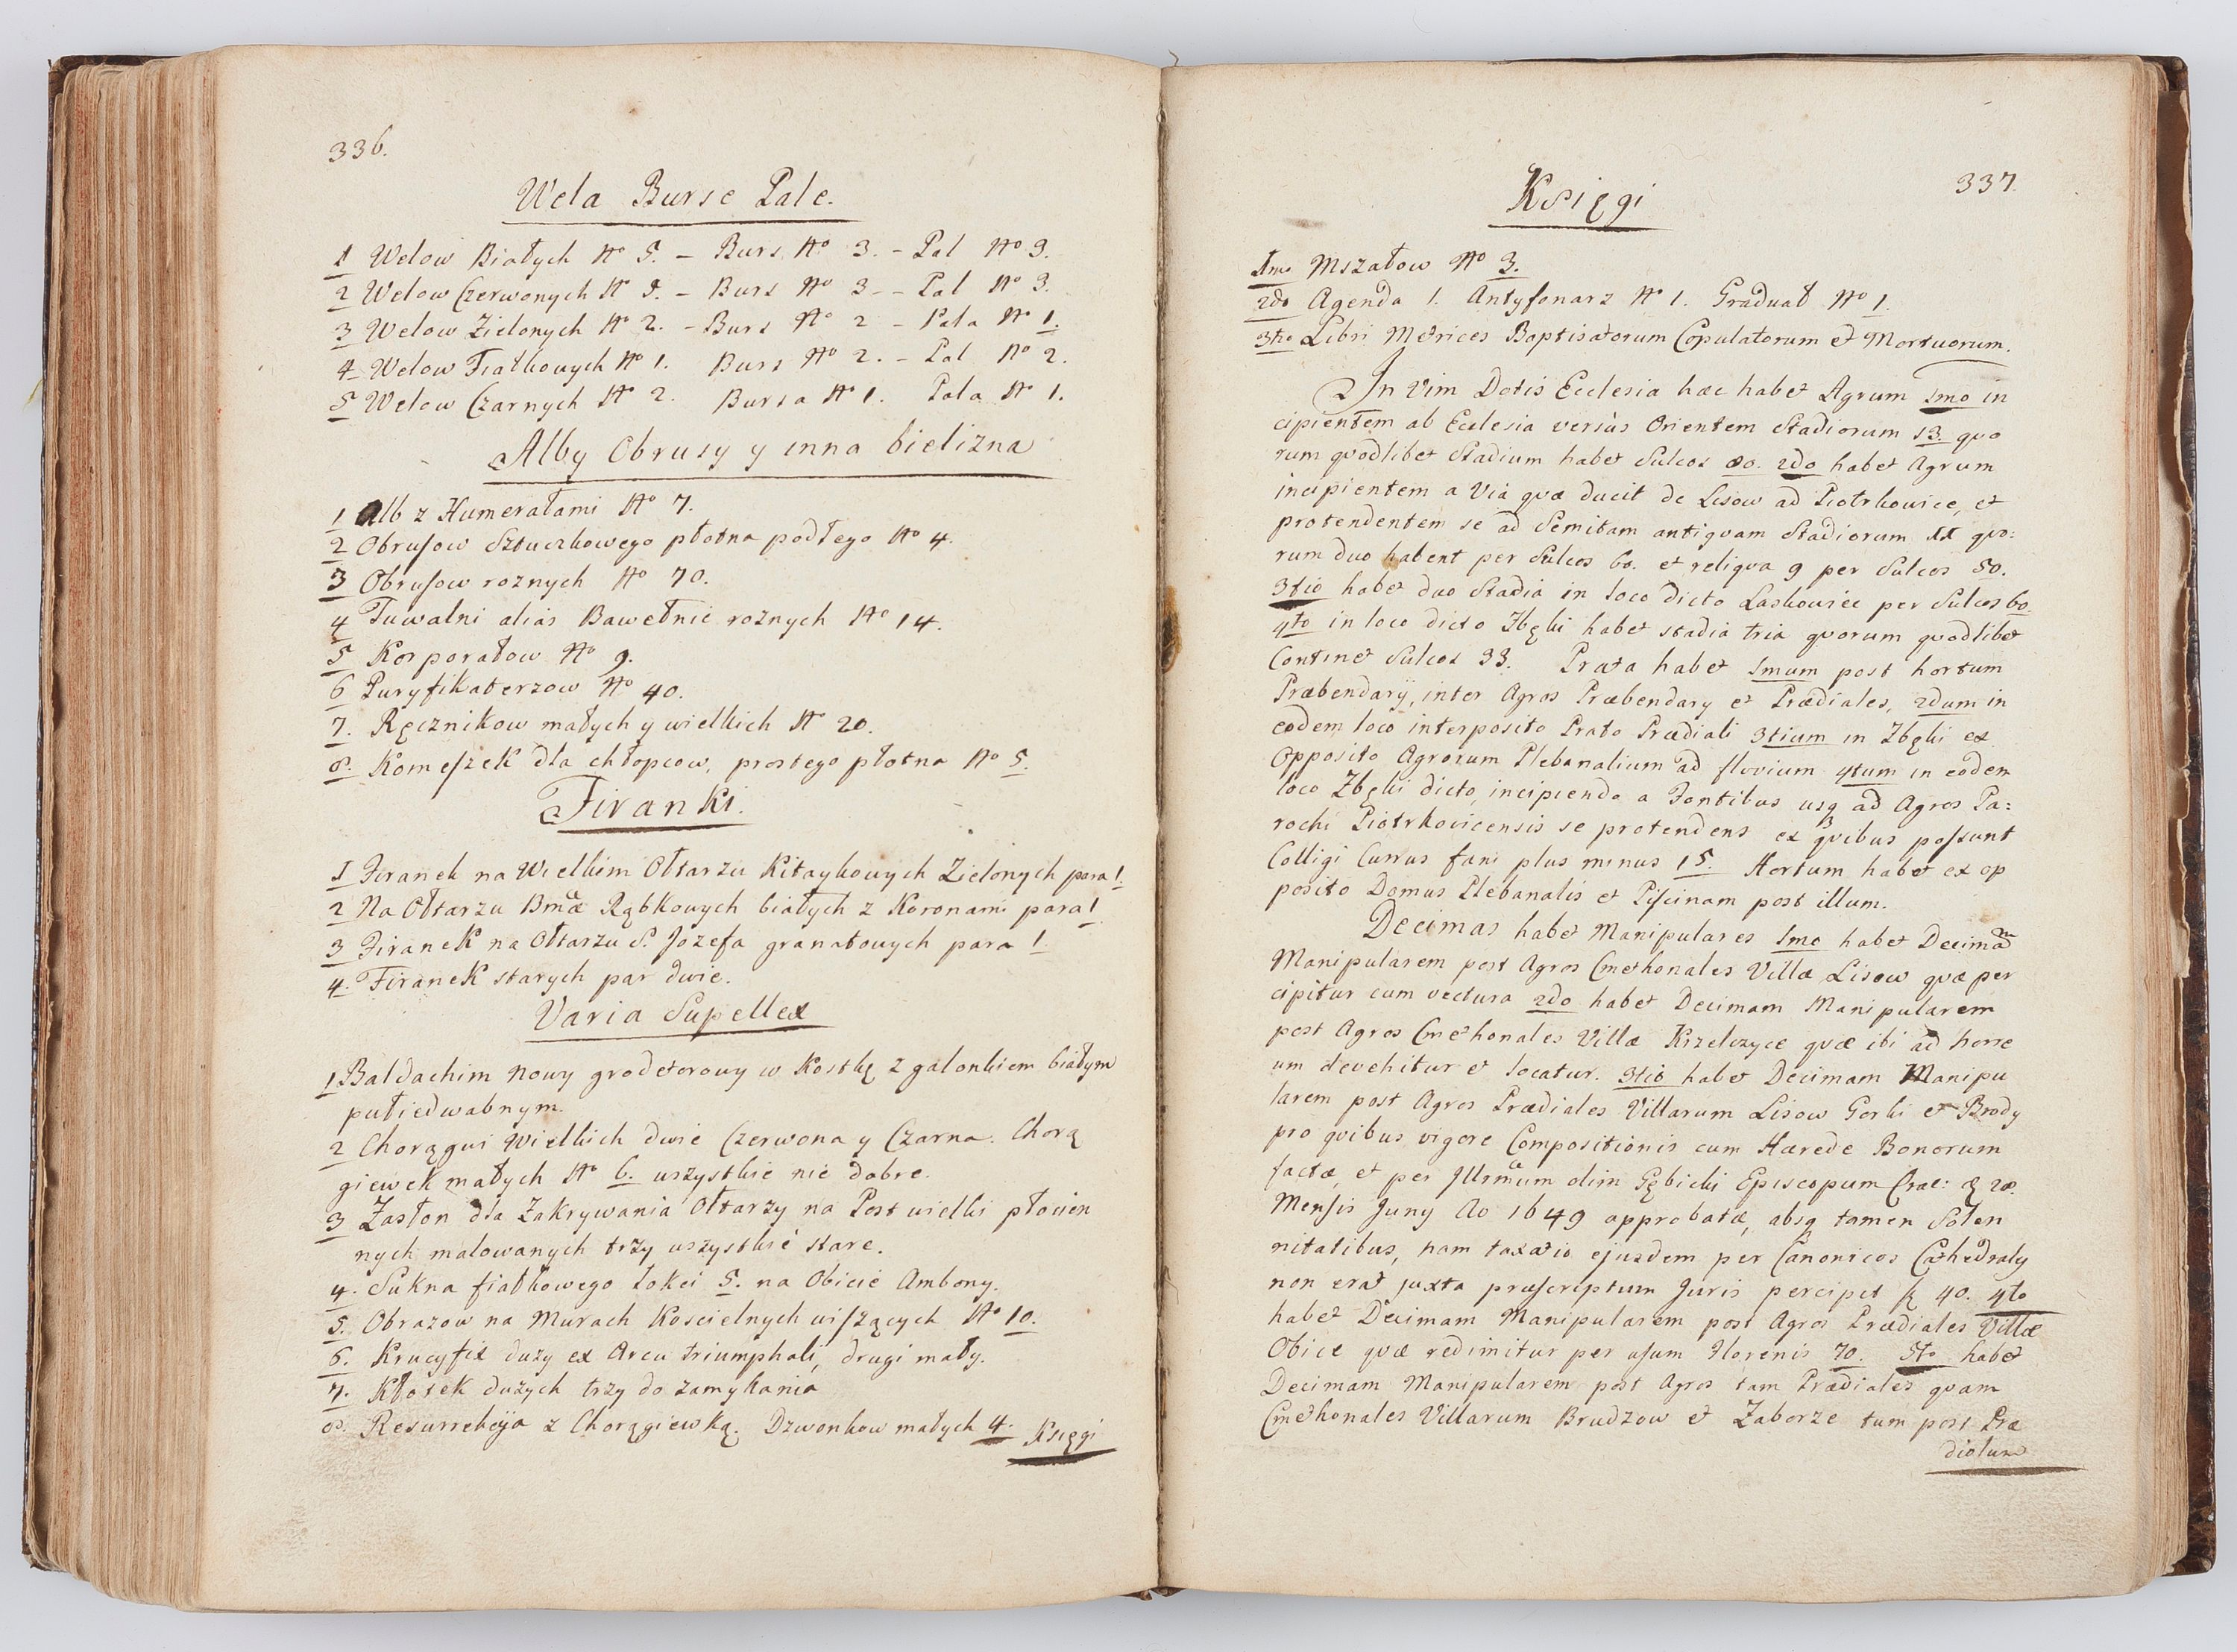 336.
Wela Burse Pale.
1 Welow Białych No 5. – Burs No 3. – Pal No 3.
2 Welow Czerwonych No 3. – Burs No 3 – Pal No 3.
3 Welow Zielonych No 2. – Burs No 2 – Pala No 1.
4 Welow Fiałkowych No 1. Burs No 2. – Pal No 2.
5 Welow Czarnych No 2. Bursa No 1. Pala No 1.
Alby Obrusy y inna bielizna
1 Alb z Humerałami No 7.
2 Obrusow Sztuczkowego płotna podłego No 4.
3 Obrusow roznych No 70.
4 Tuwalni alias Bawełnic rożnych No 14.
5 Korporałow No 9.
6 Puryfikaterzow No 40.
7. Ręcznikow małych y wielkich No 20.
8. Komeszek dla chłopcow, prostego płotna No 5.
Firanki.
1 Firanek na Wielkim Ołtarzu Kitaykowych Zielonych para 1.
2 Na Ołtarzu Bmæ Rąbkowych białych z Koronami para 1
3 Firanek na Ołtarzu S. Jozefa granatowych para 1.
4. Firanek starych par dwie.
Varia Supellex
1 Baldachim nowy grodetorowy w Kostkę z galonkiem białym
pułiedwabnym.
2 Chorągwi Wielkich dwie Czerwona y Czarna. Chorą
giewek małych No 6. wszystkie nie dobre.
3 Zasłon dla Zakrywania Ołtarzy na Post wielki płocien
nych malowanych trzy wszystkie stare.
4. Sukna fiałkowego łokci 5. na Obicie Ambony.
5. Obrazow na Murach Koscielnych wiszących No 10.
6. Krucyfix duży ex Arcu triumphali, drugi mały.
7. Kłotek dużych trzy do zamykania
8. Resurrekcyja z Chorągiewką. Dzwonkow małych 4.
Księgi
337.
Księgi
1mo Mszałow No 3.
2do Agenda 1. Antyfonarz No 1. Graduał No 1.
3tio Libri Metrices Baptisatorum Copulatorum et Mortuorum.
In Vim Dotis Ecclesia hæc habet Agrum 1mo in
cipientem ab Ecclesia versùs Orientem Stadiorum 13. quo
rum quodlibet Stadium habet Sulcos 80. 2do habet Agrum
incipientem a Via quæ ducit de Lisow ad Piotrkowice, et
protendentem se ad Semitam antiquam Stadiorum XI quo:
rum duo habent per Sulcos 60. et reliqua 9 per Sulcos 50.
3tio habet duo Stadia in loco dicto Laskowiec per Sulcos 60.
4to in loco dicto Zbęki habet stadia tria quorum quodlibet
Continet Sulcos 33. Prata habet 1mum post hortum
Præbendarij, inter Agros Præbendary et Prædiales, 2dum in
eodem loco interposito Prato Prædiali 3tium in Zbęki ex
Opposito Agrorum Plebanalium ad fluvium 4tum in eodem
loco Zbęki dicto, incipiendo a Fontibus usq ad Agros Pa:
rochi Piotrkovicensis se protendens ex quibus possunt
Colligi Currus fæni plus minus 15. Hortum habet ex op
posito Domus Plebanalis et Piscinam post illum.
Decimas habet Manipulares 1mo habet Decimam
Manipularem post Agros Cmethonales Villæ Lisow quæ per
cipitur cum vectura 2do habet Decimam Manipularem
post Agros Cmethonales Villæ Krzelczyce quæ ibi ad horre
um devehitur et locatur. 3tio habet Decimam Manipu
larem post Agros Prædiales Villarum Lisow Gorki et Brody
pro quibus vigore Compositionis cum Hærede Bonorum
factæ, et per Illrmum olim Gębicki Episcopum Crac: 28.
Mensis Juny Ao 1649 approbatæ, absq tamen Solen
nitatibus, nam taxatio ejusdem per Canonicos Cathedraly
non erat juxta præscriptum Juris percipit 40. 4to
habet Decimam Manipularem post Agros Prædiales Villæ
Obice quæ redimitur per usum Florenis 70. 5to habet
Decimam Manipularem post Agros tam Prædiales quam
Cmethonales Villarum Brudzow et Zaborze tum post Præ
diolum